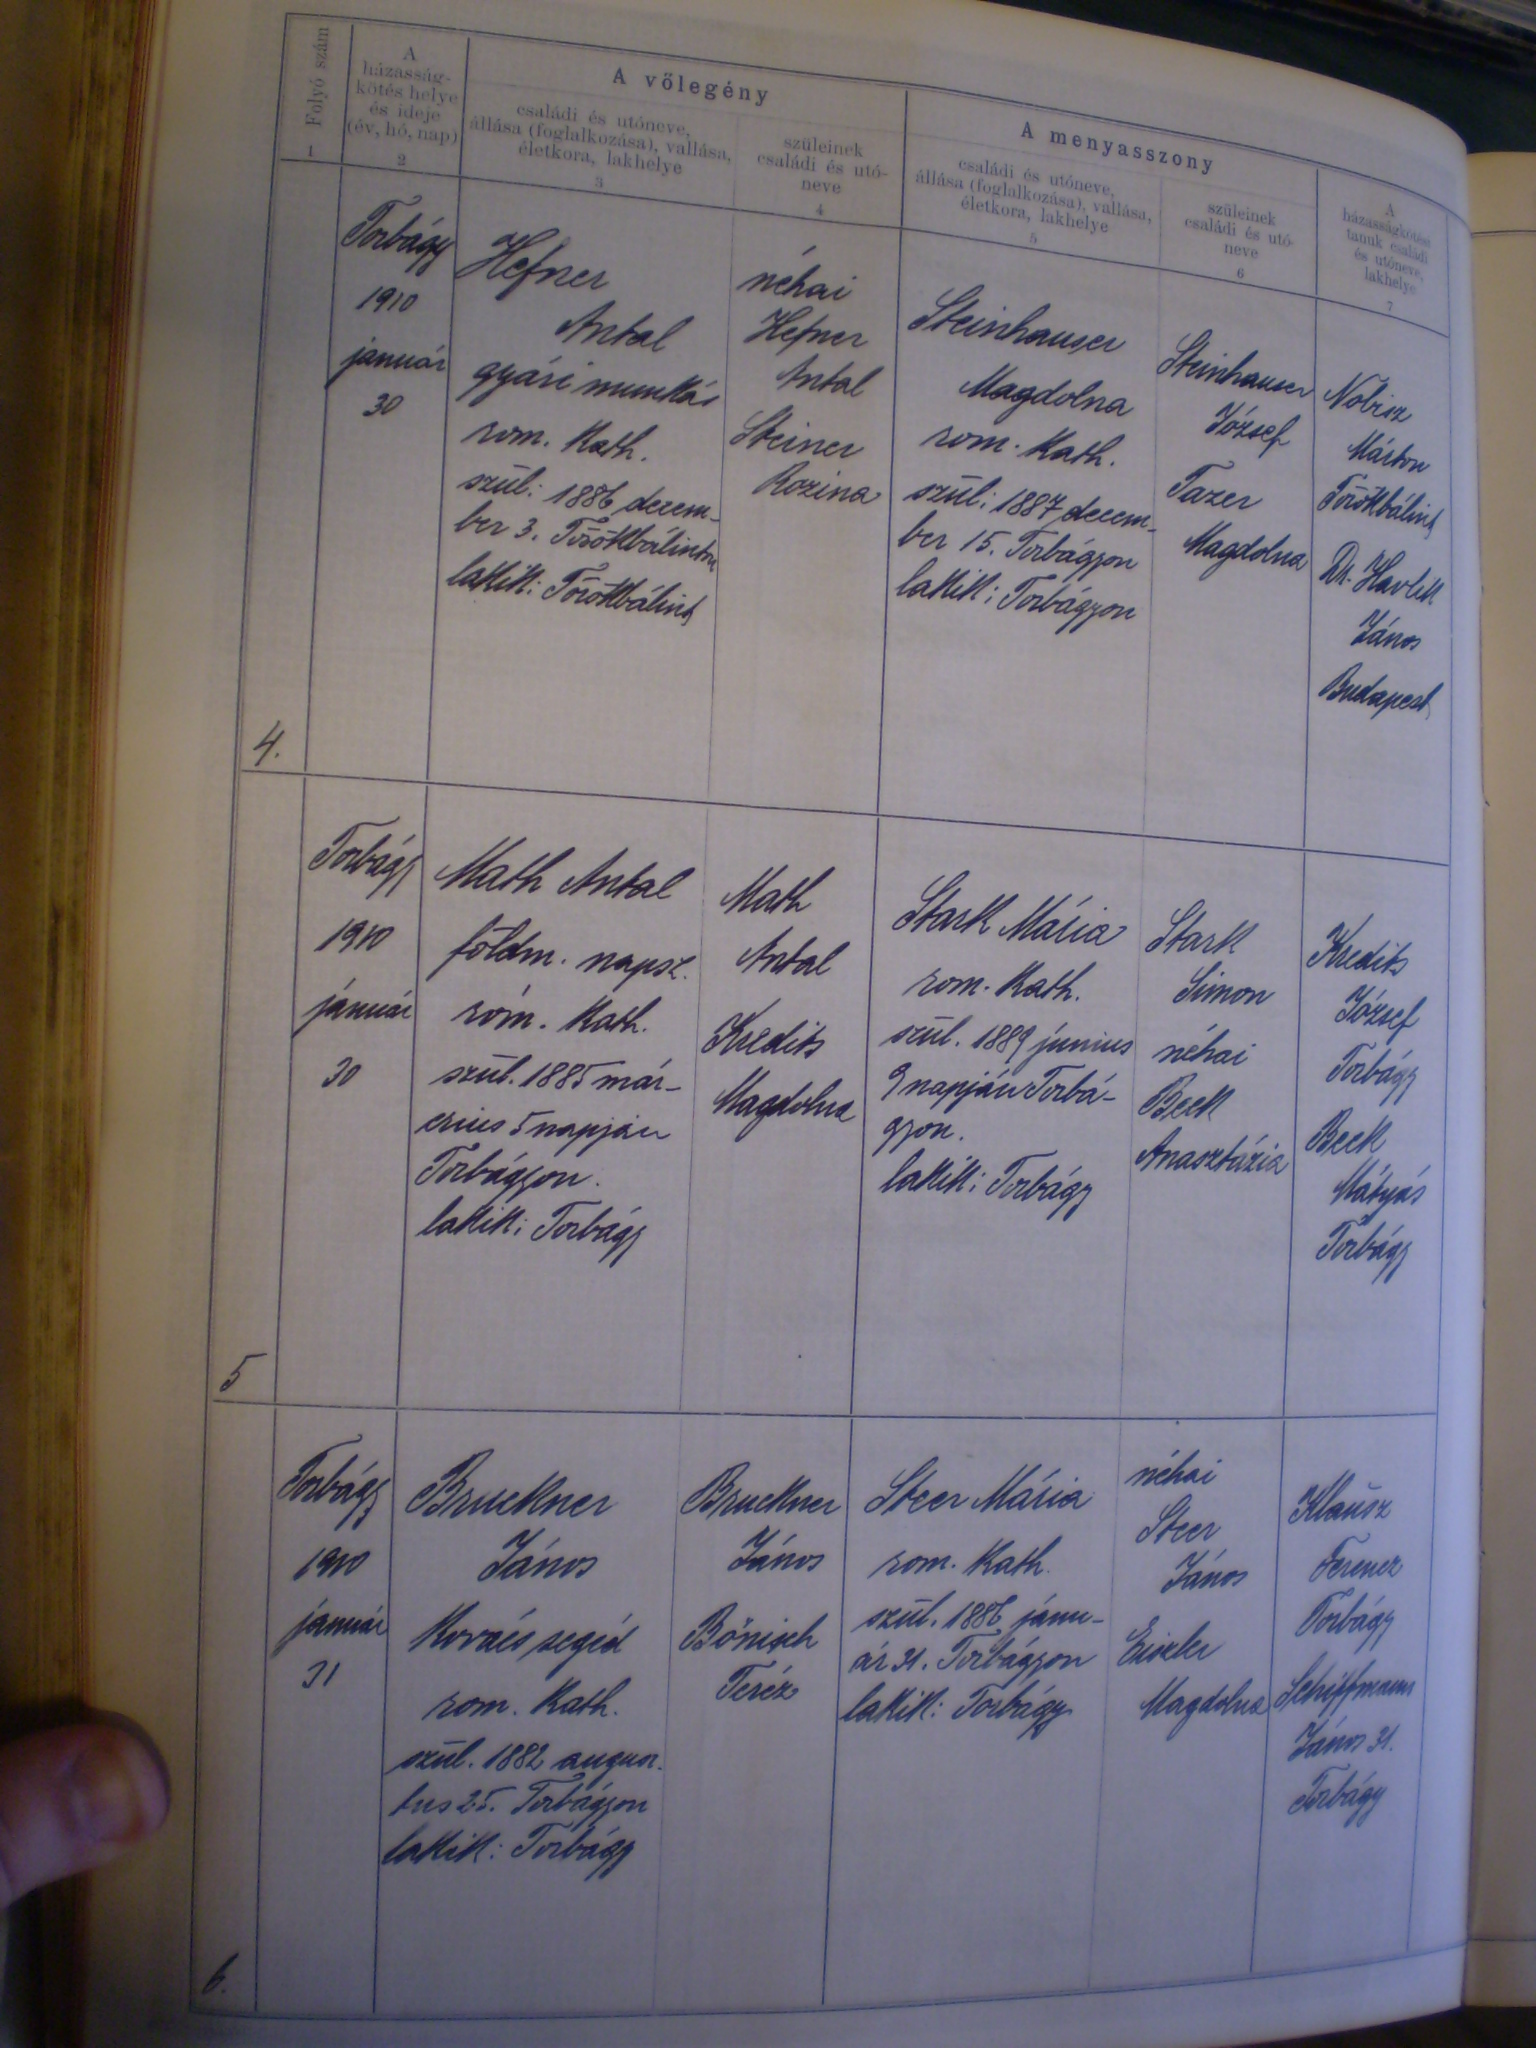 Folyó szám
1
A
házasság-
kötés helye
és ideje
(év, hó, nap)
2
A vőlegény
családi és utóneve,
állása (foglalkozása), vallása,
életkora, lakhelye
3
szüleinek
családi és utó-
neve
4
A menyasszony
családi és utóneve,
állása (foglalkozása), vallása,
életkora, lakhelye
5
szüleinek
családi és utó-
neve
6
A
házasságkötési
tanuk családi
és utóneve,
lakhelye
7
4.
Torbágy
1910
január
30
Hefner
Antal
gyári munkás
rom. kath.
szül: 1886 decem-
ber 3. Törökbálinton
lakik: Törökbálint
néhai
Hefner
Antal
Steiner
Rozina
Steinhauser
Magdolna
rom. kath.
szül: 1887 decem-
ber 15. Torbágyon
lakik: Torbágyon
Steinhauser
József
Tazer
Magdolna
Nobisz
Márton
Törökbálint
Dr. Havlik
János
Budapest
5
Torbágy
1910
január
30
Math Antal
földm. napsz.
róm. kath.
szül. 1885 már-
czius 5 napján
Torbágyon.
lakik: Torbágy
Math
Antal
Kredits
Magdolna
Stark Mária
rom. kath.
szül. 1889 június
9 napján Torbá-
gyon.
lakik: Torbágy
Stark
Simon
néhai
Beck
Anasztázia
Kredits
József
Torbágy
Beck
Mátyás
Torbágy
6.
Torbágy
1910
január
31
Bruckner
János
Kovács segéd
rom. kath.
szül. 1882 augus-
tus 25. Torbágyon
lakik: Torbágy
Bruckner
János
Bönisch
Teréz
Steer Mária
rom. kath.
szül. 1886 janu-
ár 31. Torbágyon
lakik: Torbágy
néhai
Steer
János
Eiszler
Magdolna
Klausz
Ferencz
Torbágy
Schiffmann
János 31.
Torbágy